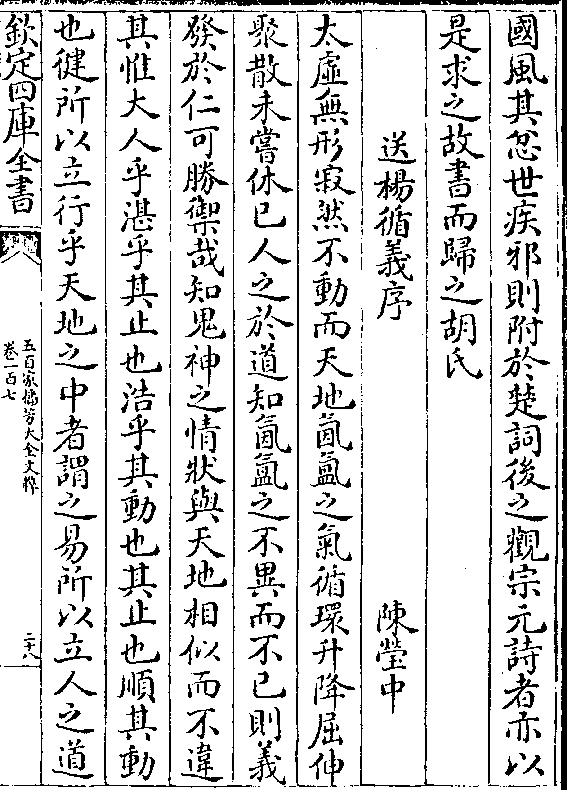 國風其忿世疾邪則附於楚詞後之觀宗元詩者亦以
是求之故書而歸之胡氏
送楊循義序
陳瑩中
太虛無形寂然不動而天地氤氳之氣循環升降屈伸
聚散未嘗休已人之於道知氤氳之不異而不已則義
發於仁可勝禦哉知鬼神之情狀與天地相似而不違
其惟大人乎湛乎其止也浩乎其動也其止也順其動
也健所以立行乎天地之中者謂之易所以立人之道
欽定四庫全書
五百家播芳大全文粹
卷一百七
二十八